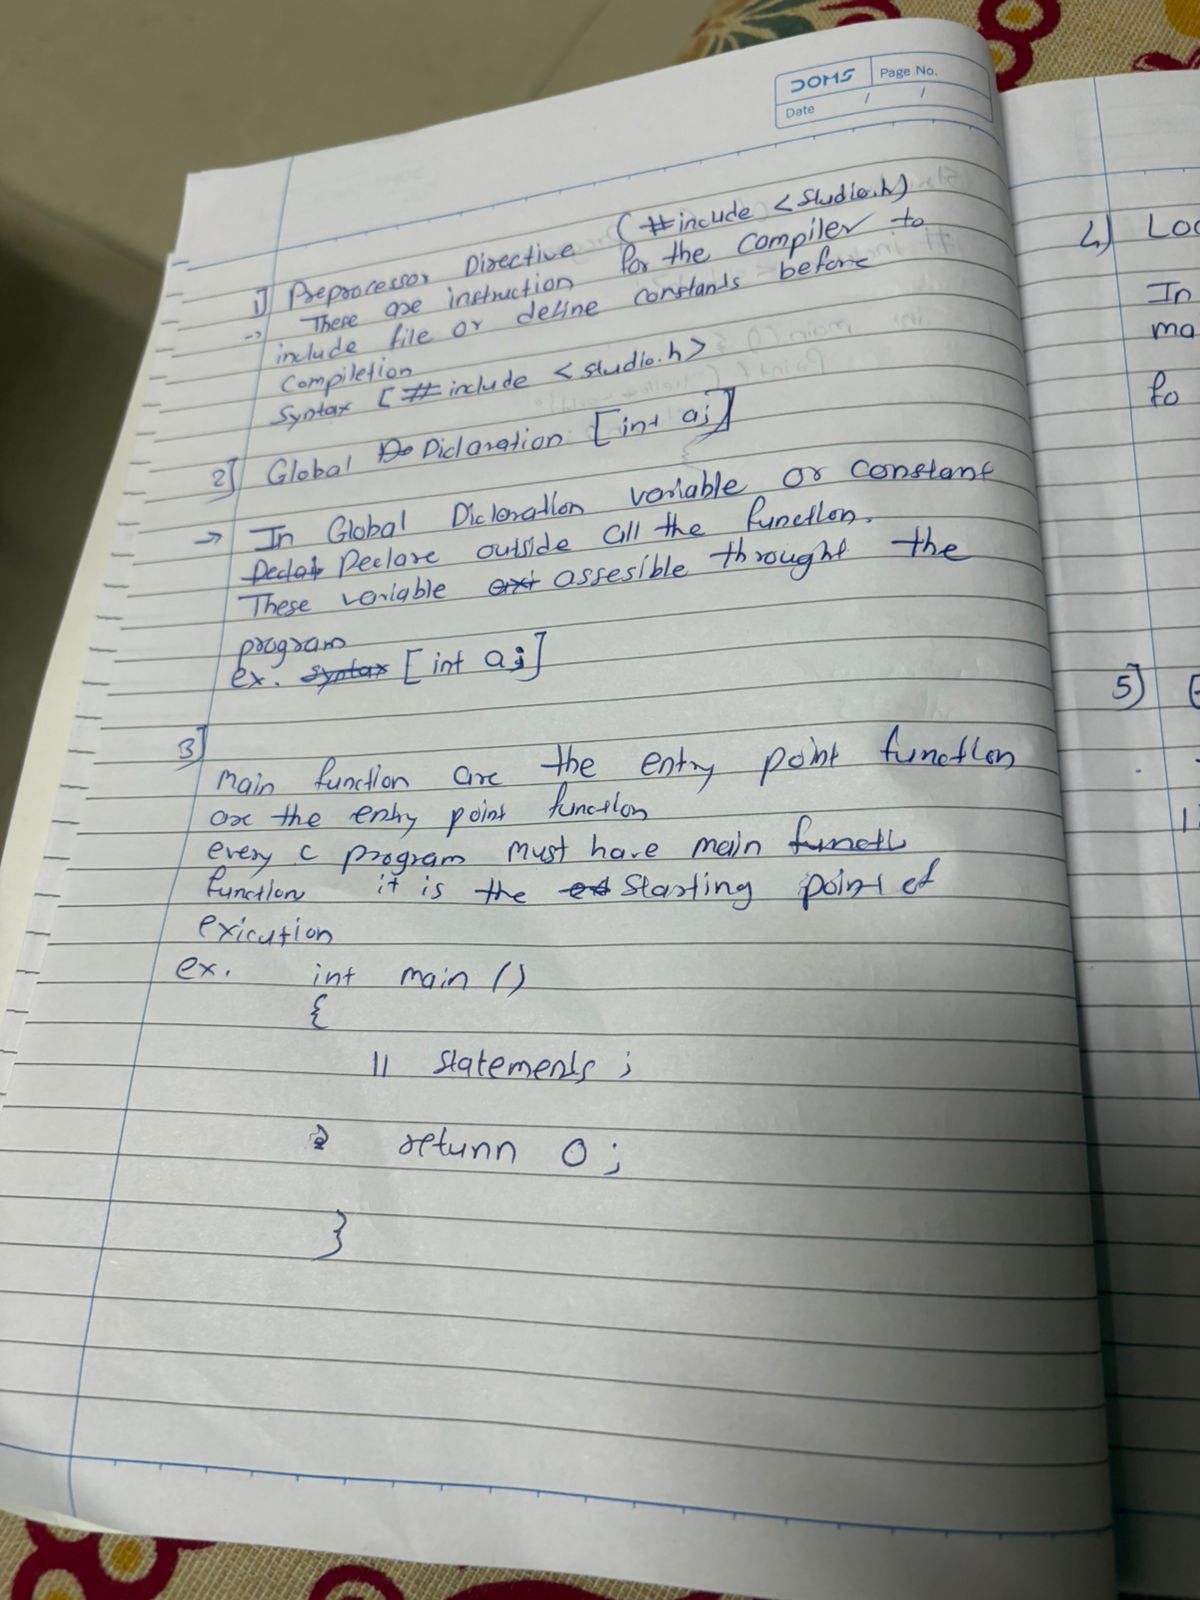 DOMS
Page No.
Date / /
1] Preprocessor Directive (#include <studio.h)
-> These are instruction for the compiler to
include file or define constants before
Compiletion
Syntax [#include <studio.h>
2] Global Diclaration [int a;]
-> In Global Diclaration variable or constant
Declare outside all the function.
These variable assesible throught the
program
ex. syntax [int a;]
3]
main function are the entry point function
are the entry point function
every c program must have main functi
function it is the starting point of
exicution
ex. int main ()
{
// statements ;
return 0 ;
}
4) Loc
In
ma
fo
5]